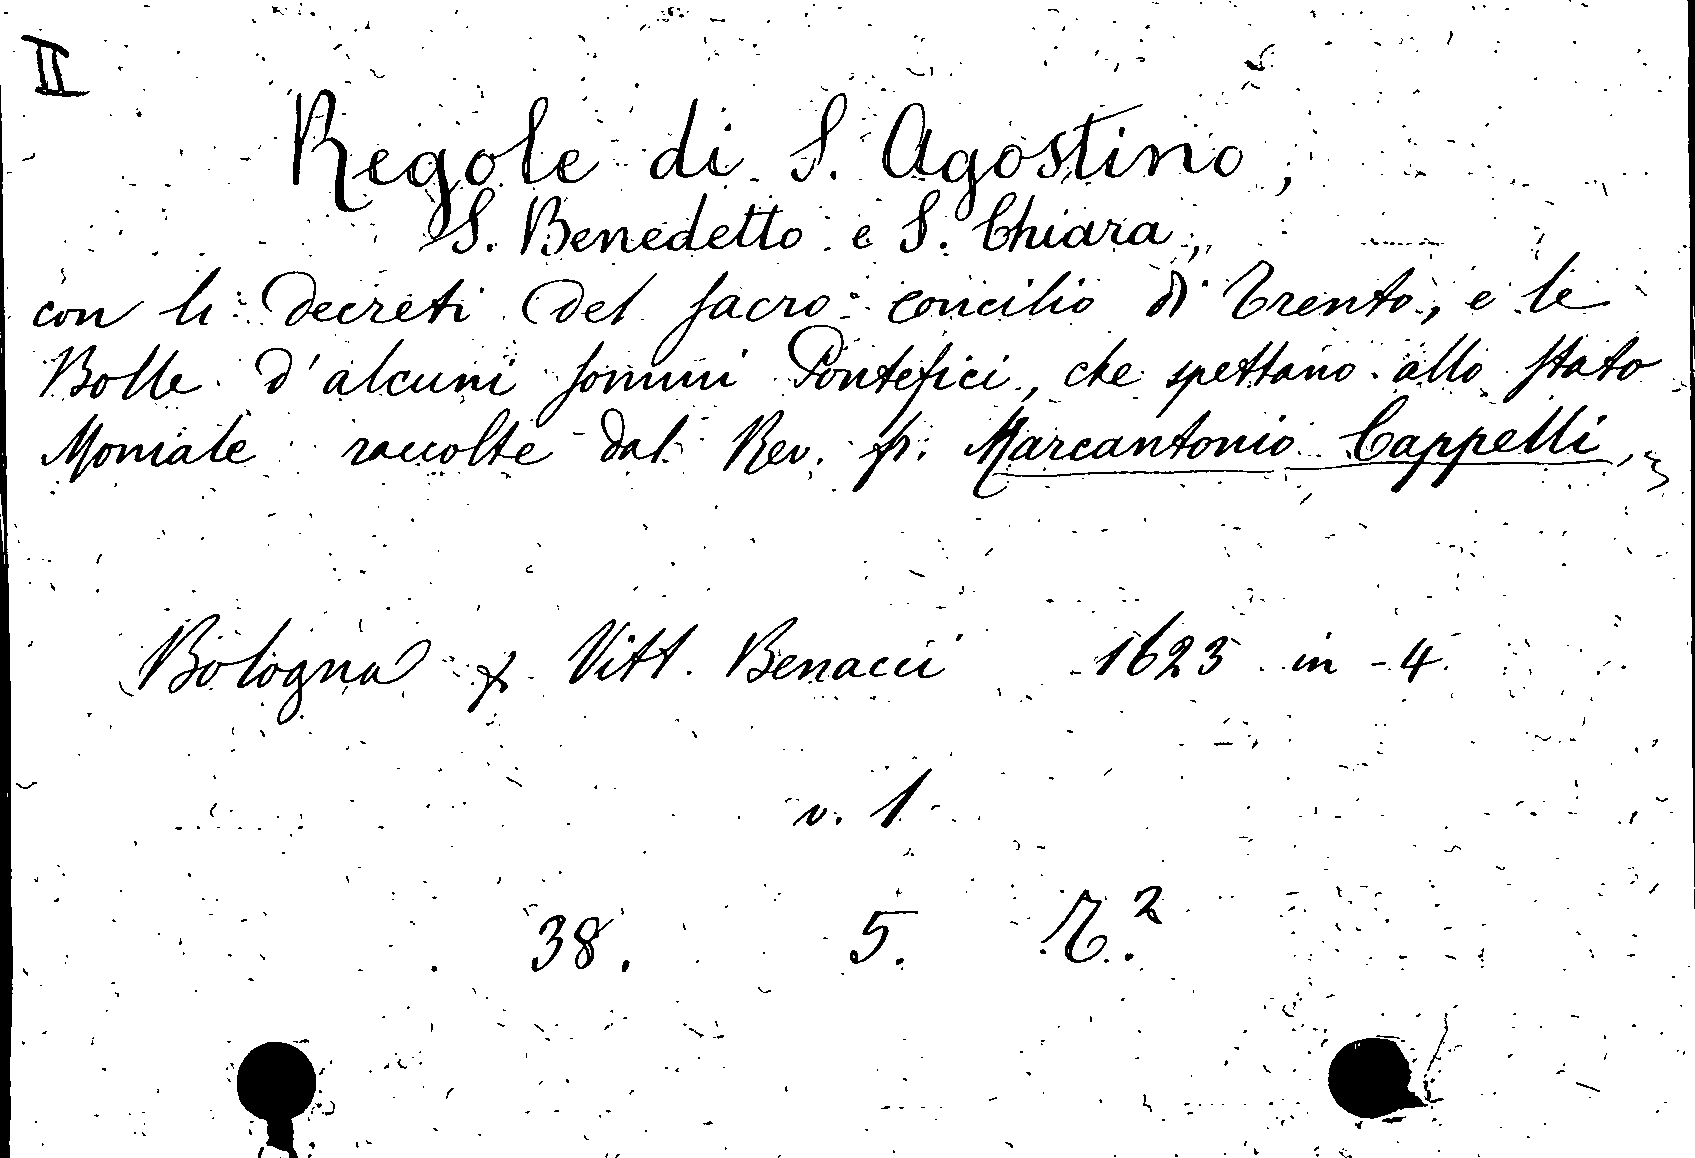 II
Regole di S. Agostino,
S. Benedetto e S. Chiara,
con li decreti del sacro concilio di Trento, e le
Bolle d'alcuni sommi Pontefici, che spettano allo stato
Moniale raccolte dal Rev. fr. Marcantonio Cappelli,
Bologna Vitt. Benacci 1623 in-4.
v. 1
38. 5.